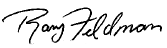 Rang Feldman